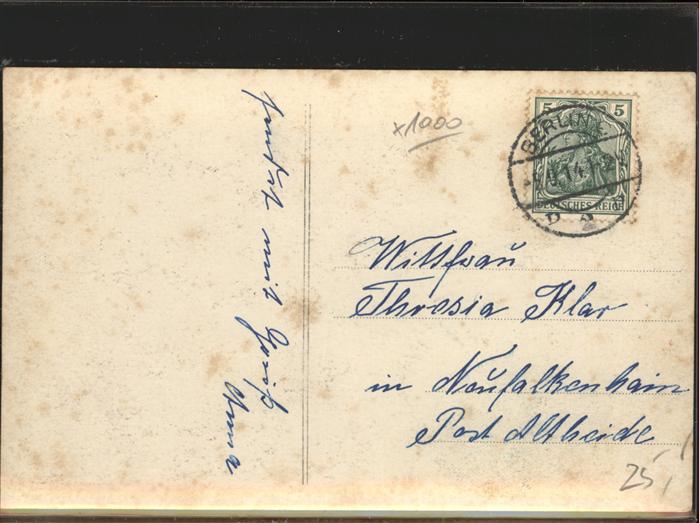 sendet mit Gruß
Anna
x1000
5 5
BERLIN
14
DEUTSCHES REICH
Wittfrau
Thresia Klar
in Neufalkenhain
Post Altheide
25,-